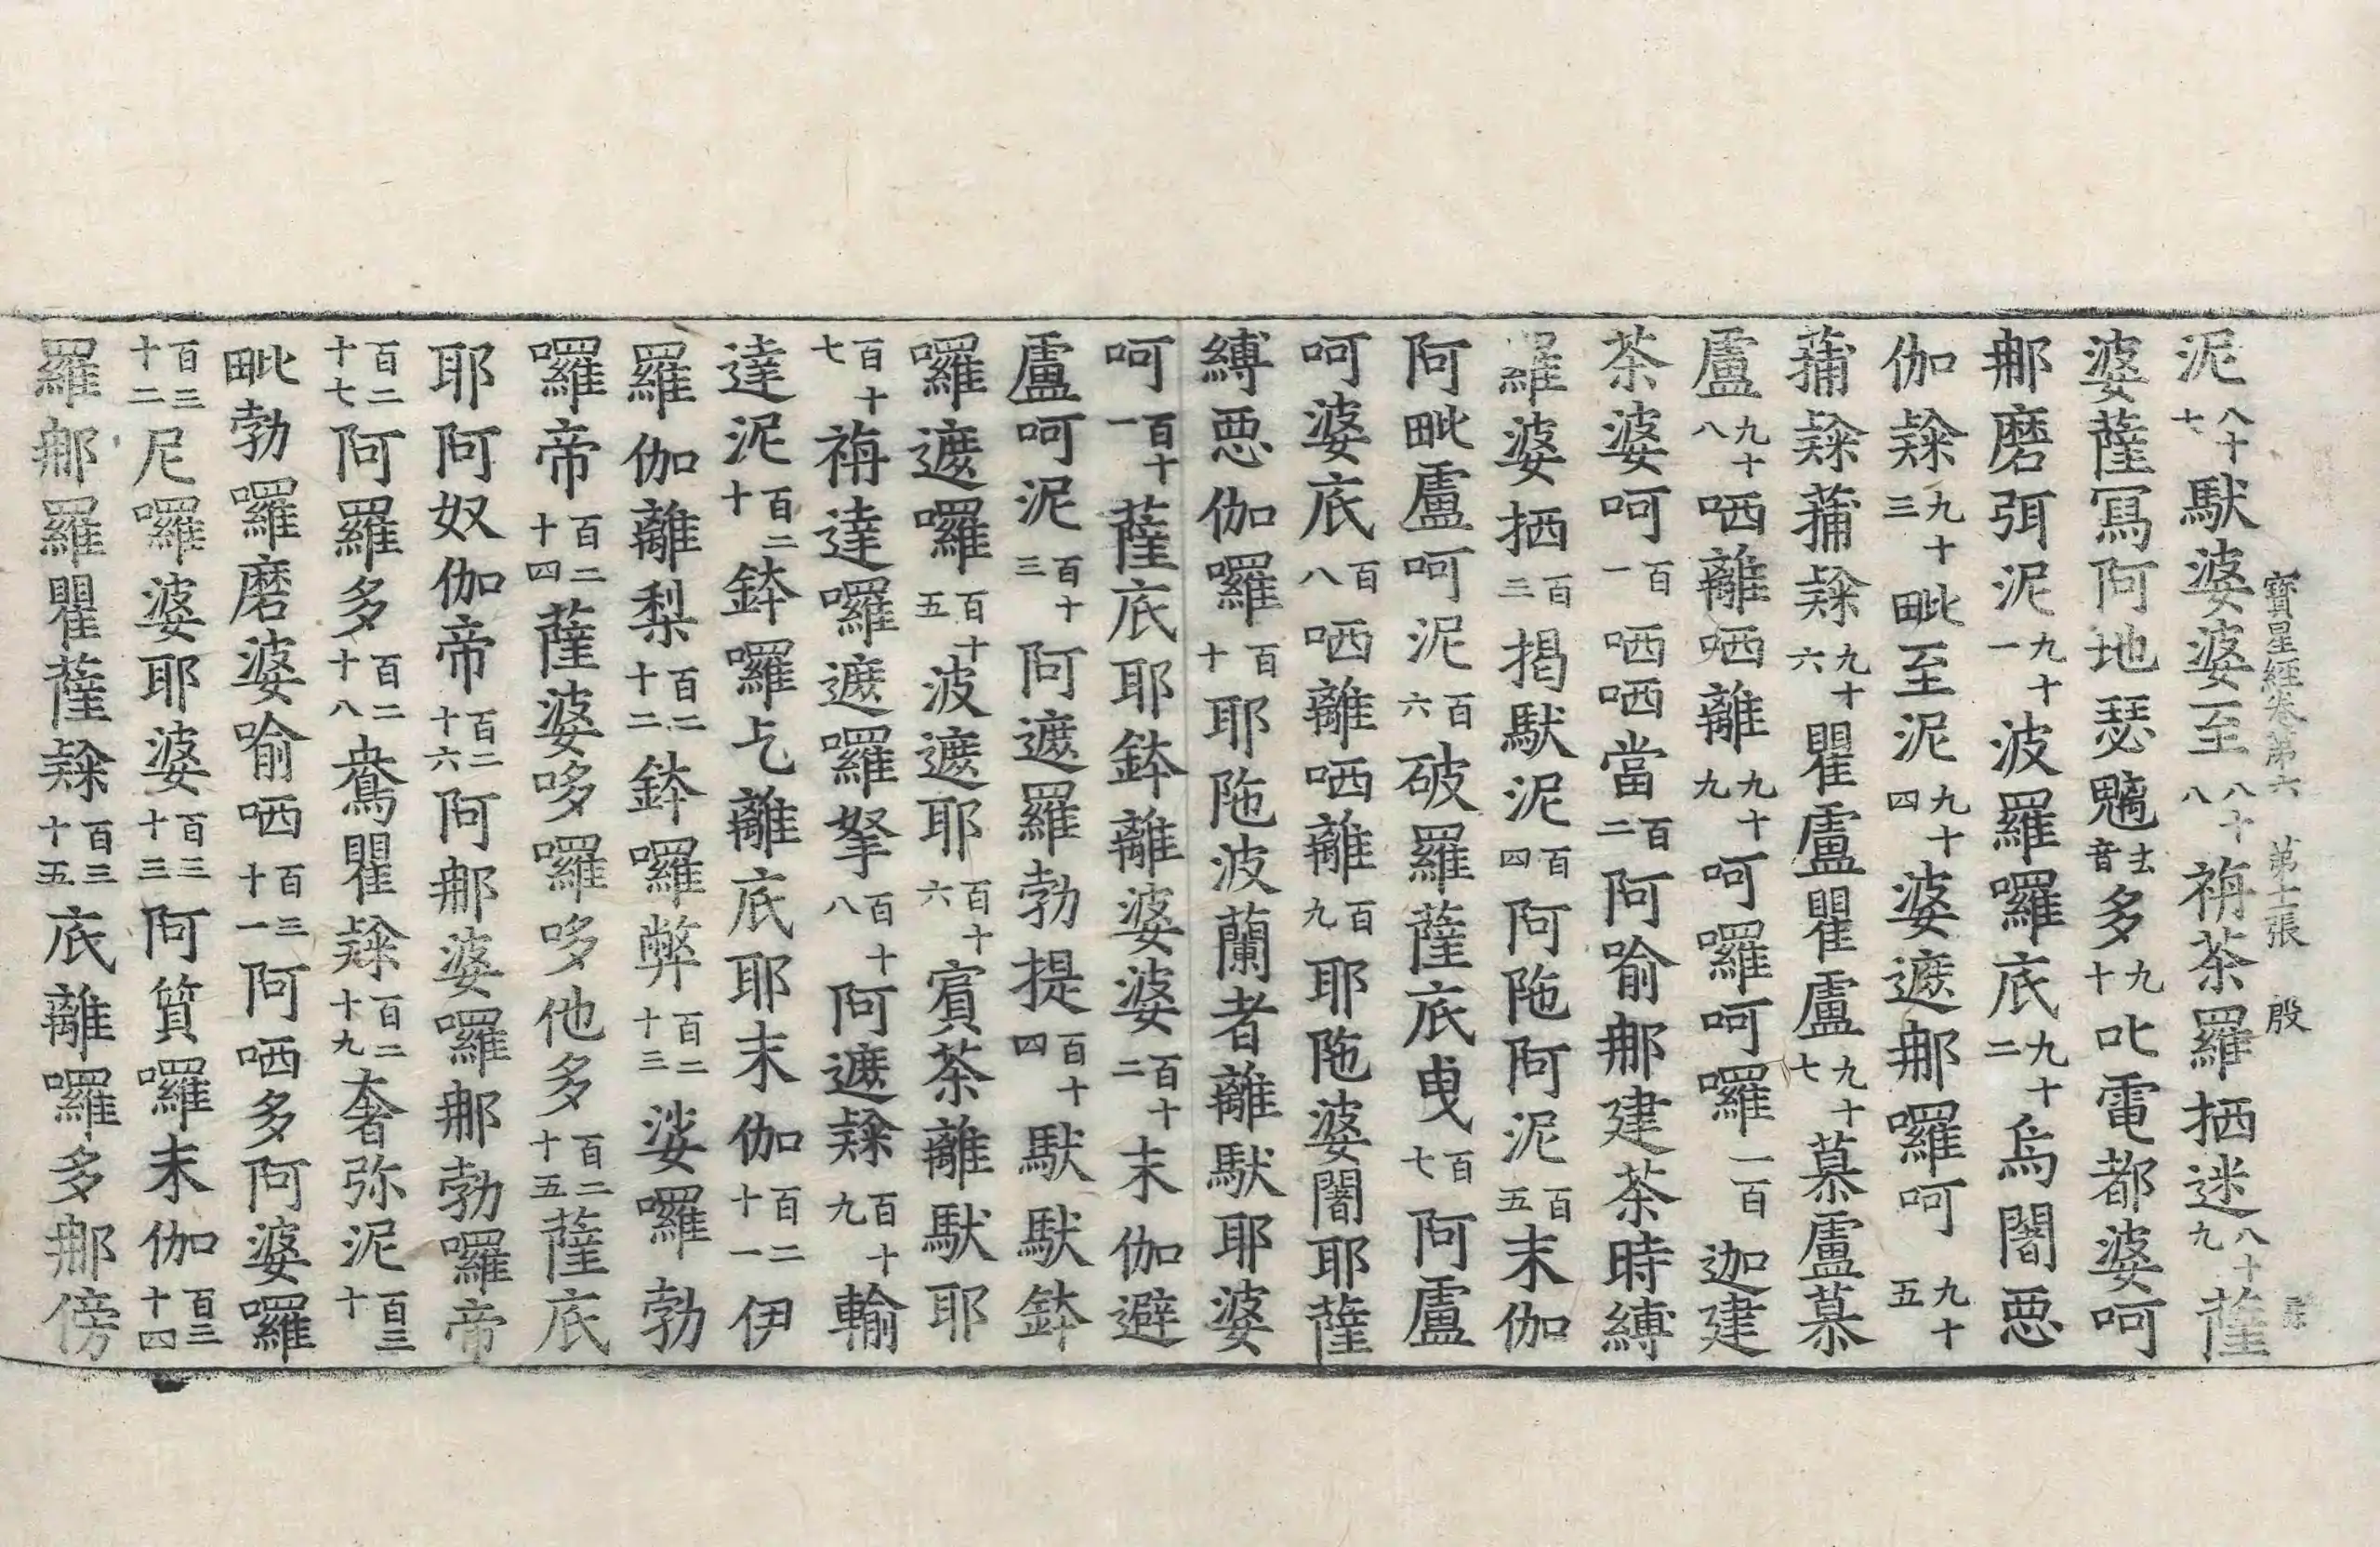 泥八十七馱婆婆至八十八䅿茶羅捿迷八十九薩
寶星經卷第六　第十一張　殷
婆薩寫阿地瑟魑音多九十叱電都婆呵
郍磨弭泥九十一波羅囉底九十二烏闍惡
伽隸九十三毗至泥九十四婆遮郍囉呵九十五
蒲隸蒲隸九十六瞿盧瞿盧九十七慕盧慕
盧九十八哂離哂離九十九呵囉呵囉一百迦建
茶婆呵百一哂哂當百二阿喻郍建茶時縛
羅婆捿百三揭馱泥百四阿陁阿泥百五末伽
阿毗盧呵泥百六破羅薩底曳百七阿盧
呵婆底百八哂離哂離百九耶陁婆闍耶薩
縛惡伽囉百十耶陁波蘭者離馱耶婆
呵百十一薩底耶鉢離婆婆百十二末伽避
盧呵泥百十三阿遮羅勃提百十四馱馱鉢
囉遮囉百十五波遮耶百十六賓茶離馱耶
百十七䅿達囉遮囉拏百十八阿遮隸百十九輸
達泥百二十鉢囉乞離底耶末伽百二十一伊
羅伽離梨百二十二鉢囉弊百二十三娑囉勃
囉帝百二十四薩婆哆囉哆他多百二十五薩底
耶阿奴伽帝百二十六阿郍婆囉郍勃囉帝
百二十七阿羅多百二十八鴦瞿隸百二十九奢弥泥百三十
毗勃囉磨婆喻哂百三十一阿哂多阿婆囉
百三十二尼囉婆耶婆百三十三阿質囉末伽百三十四
羅郍羅瞿薩隸百三十五底離囉多郍傍